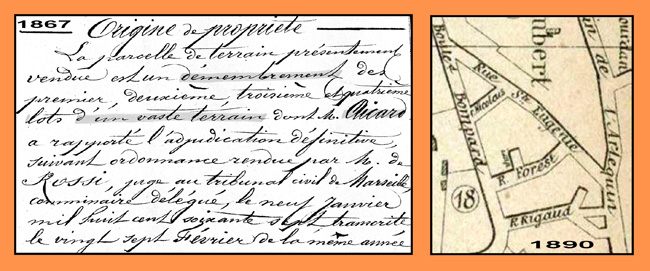 1867
Origine de propriété
La parcelle de terrain présentement
vendue est un démembrement des
premier, deuxième, troisième et quatrième
lots d'un vaste terrain dont M. Ricard
a rapporté l'adjudication définitive,
suivant ordonnance rendue par M. de
Rossi, juge au tribunal civil de Marseille,
commissaire délégué, le neuf Janvier
mil huit cent soixante sept transcrite
le vingt sept Février de la même année
Boule
Bompard
Rue
Ste Eugénie
R. Nicolas
mbert
in de
L'Arlequin
ourdan
R. Forest
18
R. Rigaud
1890